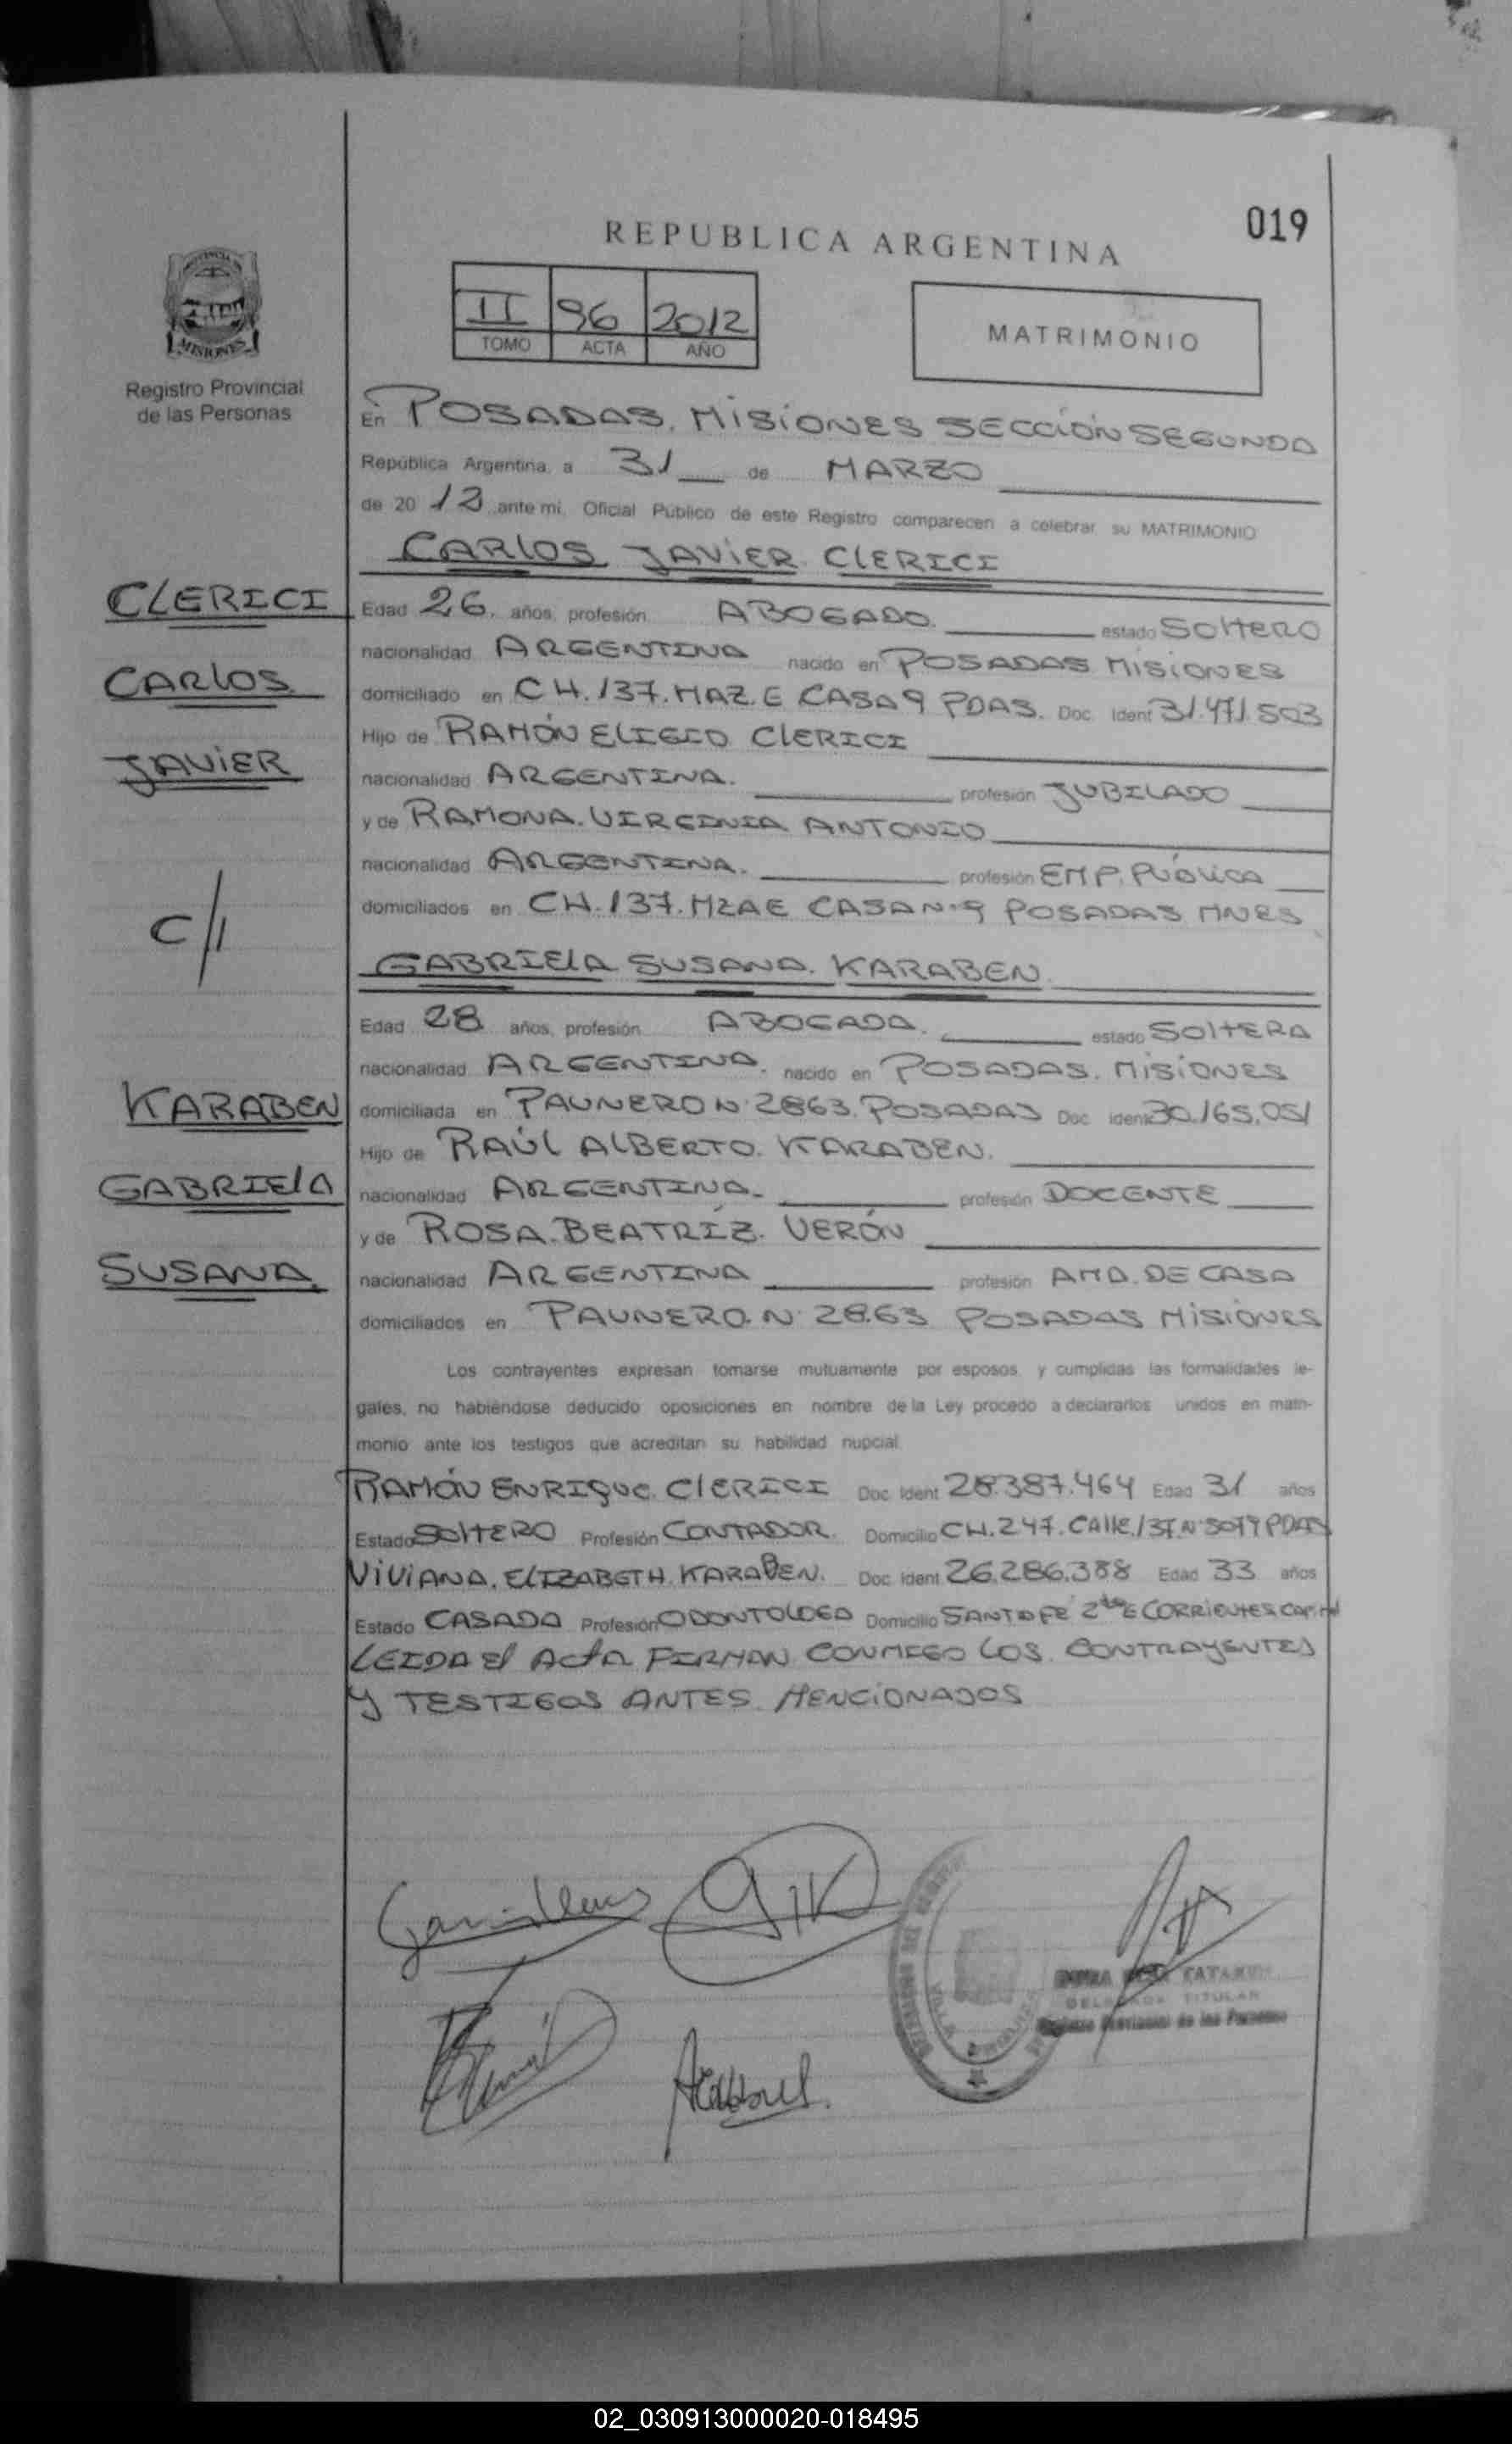 019
REPUBLICA ARGENTINA
II 96 2012
TOMO ACTA AÑO
MATRIMONIO
MISIONES
Registro Provincial
de las Personas
En POSADAS. MISIONES SECCIÓN SEGUNDA
República Argentina, a 31 de MARZO
de 20 12 ante mi, Oficial Público de este Registro comparecen a celebrar su MATRIMONIO
CARLOS JAVIER CLERICI
CLERICI
CARLOS
JAVIER
C/
Edad 26. años, profesión ABOGADO. estado SOLTERO
nacionalidad ARGENTINA nacido en POSADAS MISIONES
domiciliado en CH.137.MAZ.E CASA 9 PDAS. Doc. Ident 31.471.503
Hijo de RAMÓN ELIGIO CLERICI
nacionalidad ARGENTINA. profesión JUBILADO
y de RAMONA. VIRGINIA ANTONIO
nacionalidad ARGENTINA. profesión EMP. PÚBLICA
domiciliados en CH.137.MZA E CASA N·9 POSADAS MNES
GABRIELA SUSANA. KARABEN
KARABEN
GABRIELA
SUSANA
Edad 28 años, profesión ABOGADA. estado SOLTERA
nacionalidad ARGENTINA. nacido en POSADAS. MISIONES
domiciliada en PAUNERO N· 2863. POSADAS Doc. Ident 30.165.051
Hijo de RAÚL ALBERTO. KARABEN.
nacionalidad ARGENTINA. profesión DOCENTE
y de ROSA. BEATRÍZ. VERÓN
nacionalidad ARGENTINA profesión AMA. DE CASA
domiciliados en PAUNERO. N· 2863 POSADAS MISIONES
Los contrayentes expresan tomarse mutuamente por esposos y cumplidas las formalidades le-
gales, no habiéndose deducido oposiciones en nombre de la Ley procedo a declararlos unidos en matri-
monio ante los testigos que acreditan su habilidad nupcial
RAMÓN ENRIQUE CLERICI Doc. Ident 28.387.464 Edad 31 años
Estado SOLTERO Profesión CONTADOR. Domicilio CH.247.CALLE.137.N· PDAS
VIVIANA. ELIZABETH. KARABEN. Doc. Ident 26.286.388 Edad 33 años
Estado CASADA Profesión ODONTOLOGA Domicilio SANTA FE CORRIENTES
LEIDA El ACTA FIRMAN CONMIGO LOS CONTRAYENTES
Y TESTIGOS ANTES MENCIONADOS
TITULAR
Registro Provincial de las Personas
02_030913000020-018495